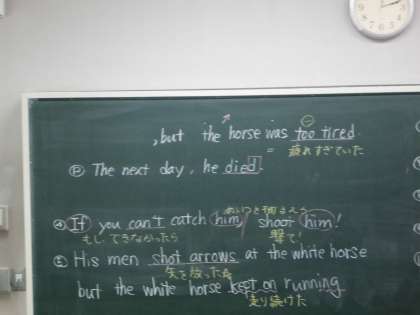 , but the horse was too tired.
疲れすぎていた
The next day, he died.
あいつを捕まえる
If you can't catch him, shoot him!
もし できなかったら 撃て!
His men shot arrows at the white horse
矢を放った
but the white horse kept on running
走り続けた